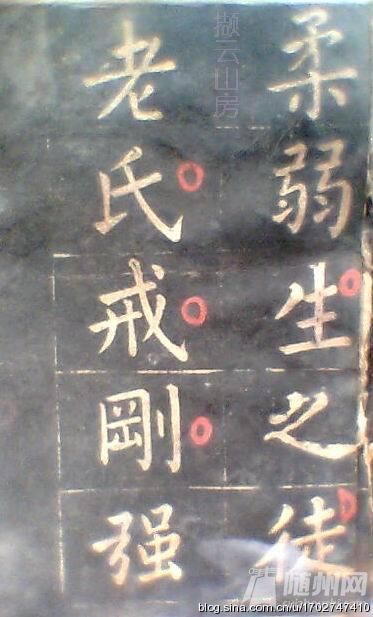 柔弱生之徒
老氏戒剛强
撷云山房
随州网
blog.sina.com.cn/u/1702747410